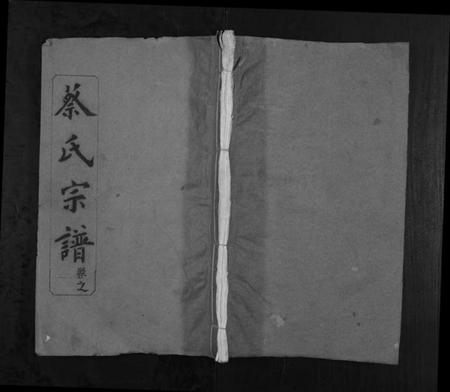 蔡氏宗譜
卷之